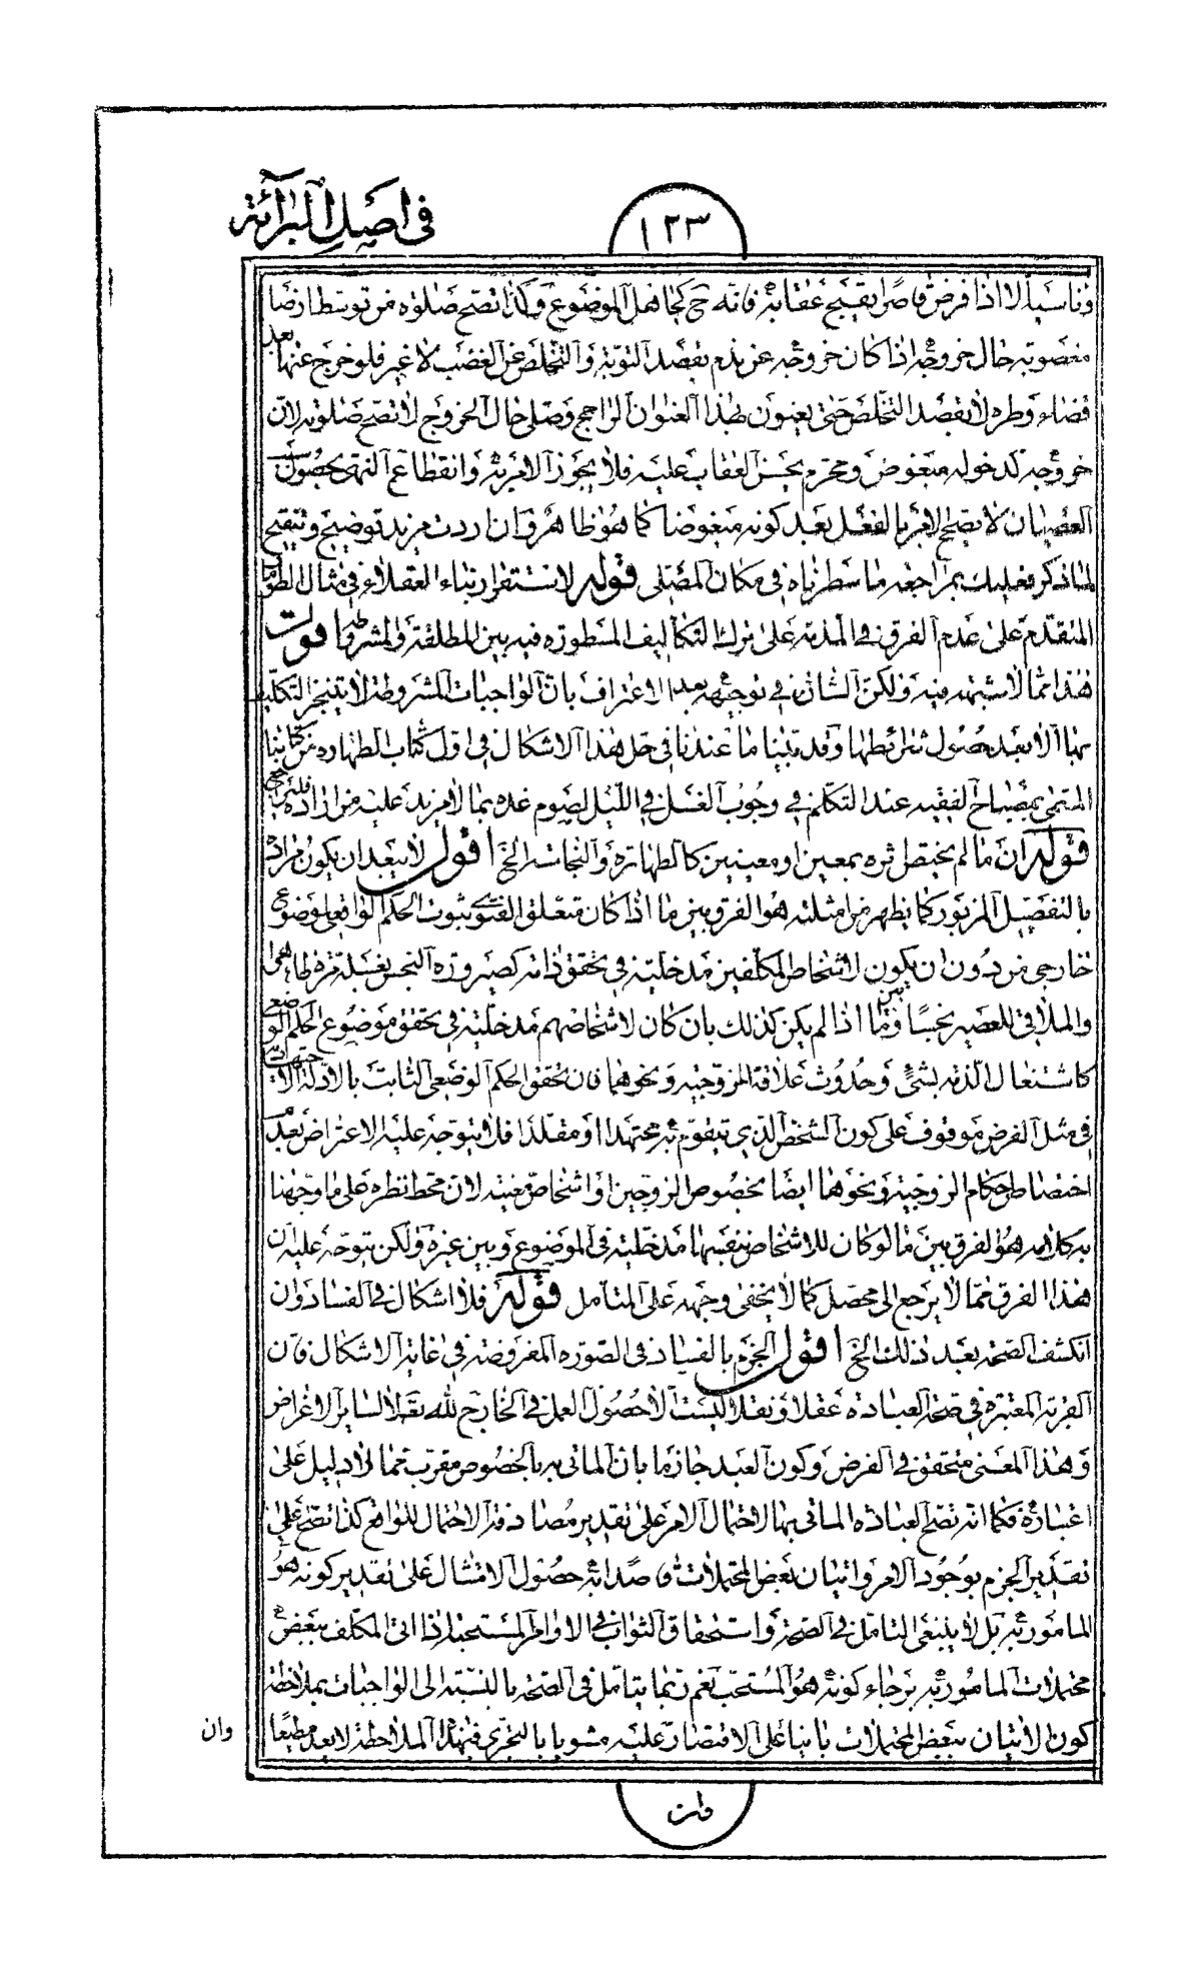 في اصل البرائة
١٢٣
وناسيا لا اذا فرض قاصرا يقبح عقابه فانه ح كجاهل الموضوع وكذا تصح صلوة من توسط ارضا
مغصوبة حال خروجه اذا كان خروجه عن ندم بقصد التوبة والتخلص عن الغصب لا غير فلو خرج عنها بعد
قضاء وطره لا بقصد التخلص حتى يعنون بهذا العنوان الراجح وصلى حال الخروج لا تصح صلوته لان
خروجه كدخوله مبغوض ومحرم يحسن العقاب عليه فلا يجوز الامر به وانقطاع النهى بحصول
العصيان لا يصلح الامر بالفعل بعد كونه مبغوضا كما هو ظاهر وان اردت مزيد توضيح وتنقيح
لما ذكر فعليك بمراجعة ما سطرناه في مكان المصلى قوله لاستقرار بناء العقلاء في مثال الطومار
المتقدم على عدم الفرق في المذمة على ترك التكاليف المسطورة فيه بين المطلقة والمشروطة اقول
هذا مما لا شبهة فيه ولكن الشان في توجيهه بعد الاعتراف بان الواجبات المشروطة لا يتنجز التكليف
بها الا بعد حصول شرائطها وقد بينا ما عندنا في حل هذا الاشكال في اول كتاب الطهارة من كتابنا
المسمى بمصباح الفقيه عند التكلم في وجوب الغسل في الليل لصوم غده بما لا مزيد عليه من اراده فليراجع
قوله ان ما لم يختص ثمره بمعين او معينين كالطهارة والنجاسة الخ اقول لا يبعد ان يكون مراده
بالتفصيل المزبور كما يظهر من امثلته هو الفرق بين ما اذا كان متعلق الفتوى ثبوت الحكم الواقعي لموضوع
خارجي من دون ان يكون لاشخاص المكلفين مدخلية في تحقق ذاته كصيرورة النجس بغسله مرة طاهرا
والملاقي للعصير نجسا وبين ما اذا لم يكن كذلك بان كان لاشخاصهم مدخلية في تحقق موضوع الحكم الوضعي
كاشتغال الذمة بشئ وحدوث علاقة المزوجية ونحوهما فان تحقق الحكم الوضعي الثابت بالادلة الاجتهادية
في مثل الفرض موقوف على كون الشخص الذي يتقوم به مجتهدا او مقلدا فلا يتوجه عليه الاعتراض بعدم
اختصاص احكام الزوجية ونحوها ايضا بخصوص الزوجين او اشخاص معينة لان محط نظره على ما وجهنا
به كلامه هو الفرق بين ما لو كان للاشخاص بنفسها مدخلية في الموضوع وبين غيره ولكن يتوجه عليه ان
هذا الفرق مما لا يرجع الى محصل كما لا يخفى وجهه على المتامل قوله فلا اشكال في الفساد وان
انكشف الصحة بعد ذلك الخ اقول الجزم بالفساد في الصورة المفروضة في غاية الاشكال فان
القربة المعتبرة في صحة العبادة عقلا ونقلا ليست الا حصول العمل في الخارج لله تعالى لا لسائر الاغراض
وهذا المعنى متحقق في الفرض وكون العبد جازما بان الماتى به بالخصوص مقرب مما لا دليل على
اعتباره فكما انه تصح العبادة الماتى بها لاحتمال الامر على تقدير مصادفة الاحتمال للواقع كذا تصح على
تقدير الجزم بوجود الامر واتيان بعض المحتملات قاصدا به حصول الامتثال على تقدير كونه هو
المامور به بل لا ينبغي التامل في الصحة واستحقاق الثواب في الاوامر المستحبة اذا اتى المكلف ببعض
محتملات المامور به برجاء كونه هو المستحب نعم ربما يتامل في الصحة بالنسبة الى الواجبات بملاحظة
كون الاتيان ببعض المحتملات بانيا على الاقتصار عليه مشوبا بالتجري فبهذه الملاحظة لا يعد مطيعا
وان